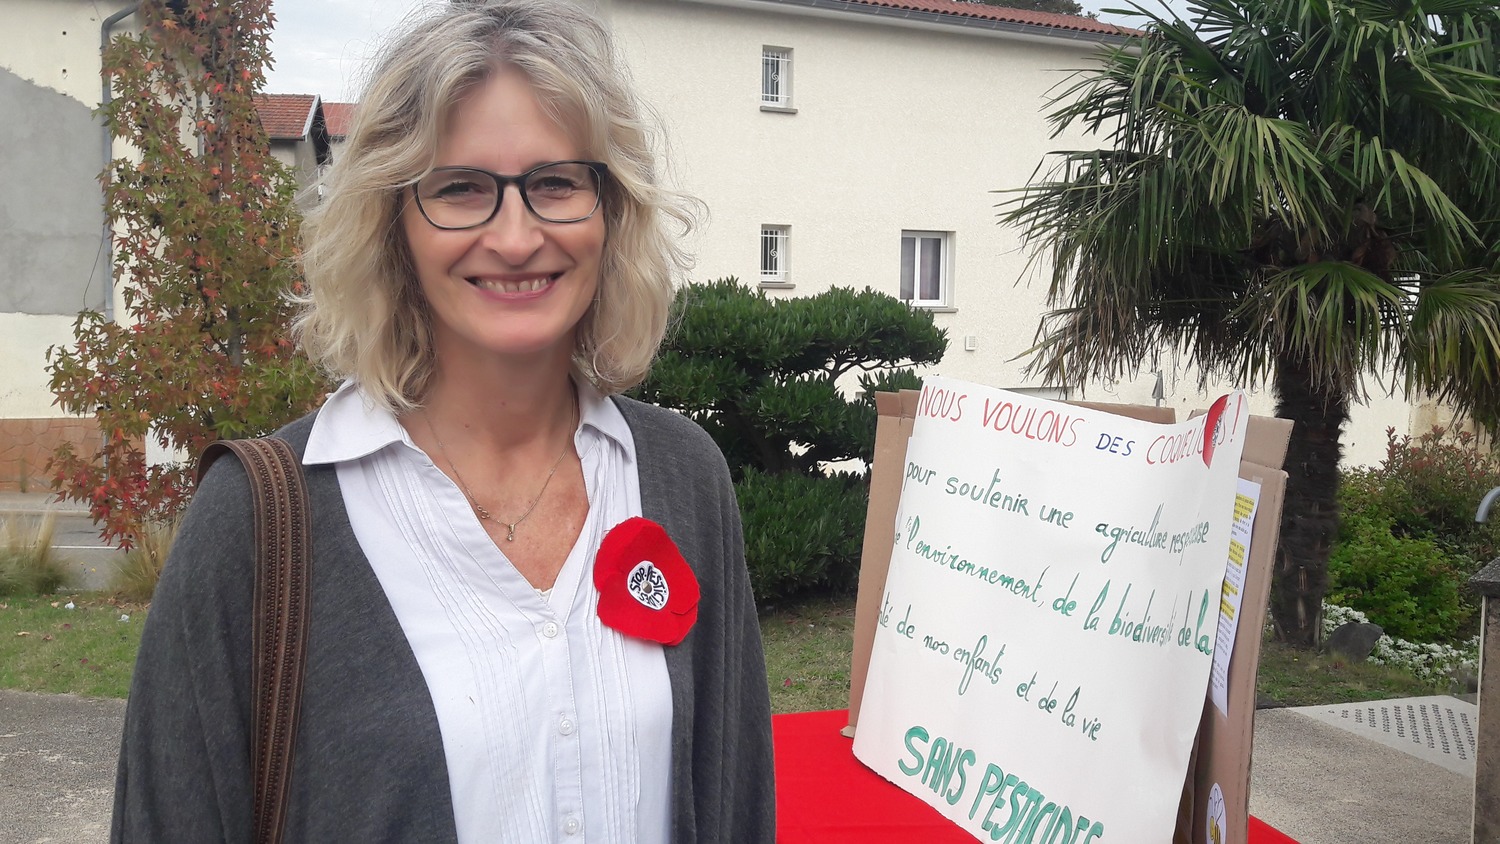 NOUS VOULONS DES COQUELIC S!
pour soutenir une agriculture resp use
l'environnement, de la biodiversité de la
té de nos enfants et de la vie
SANS PESTICIDES
STOP PESTIC